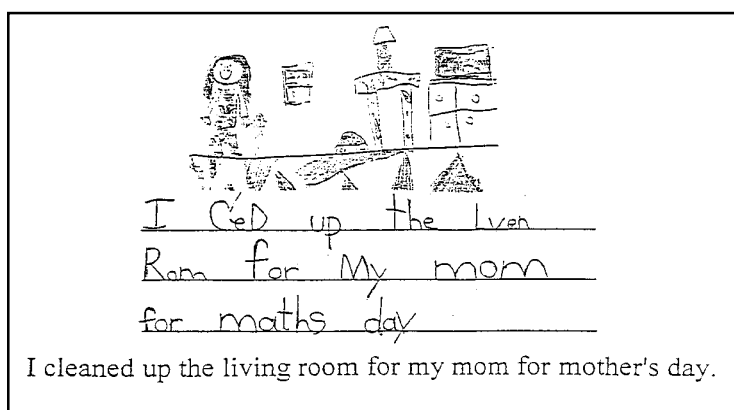 I C'eD up the Lven
Rom for My mom
for maths day
I cleaned up the living room for my mom for mother's day.